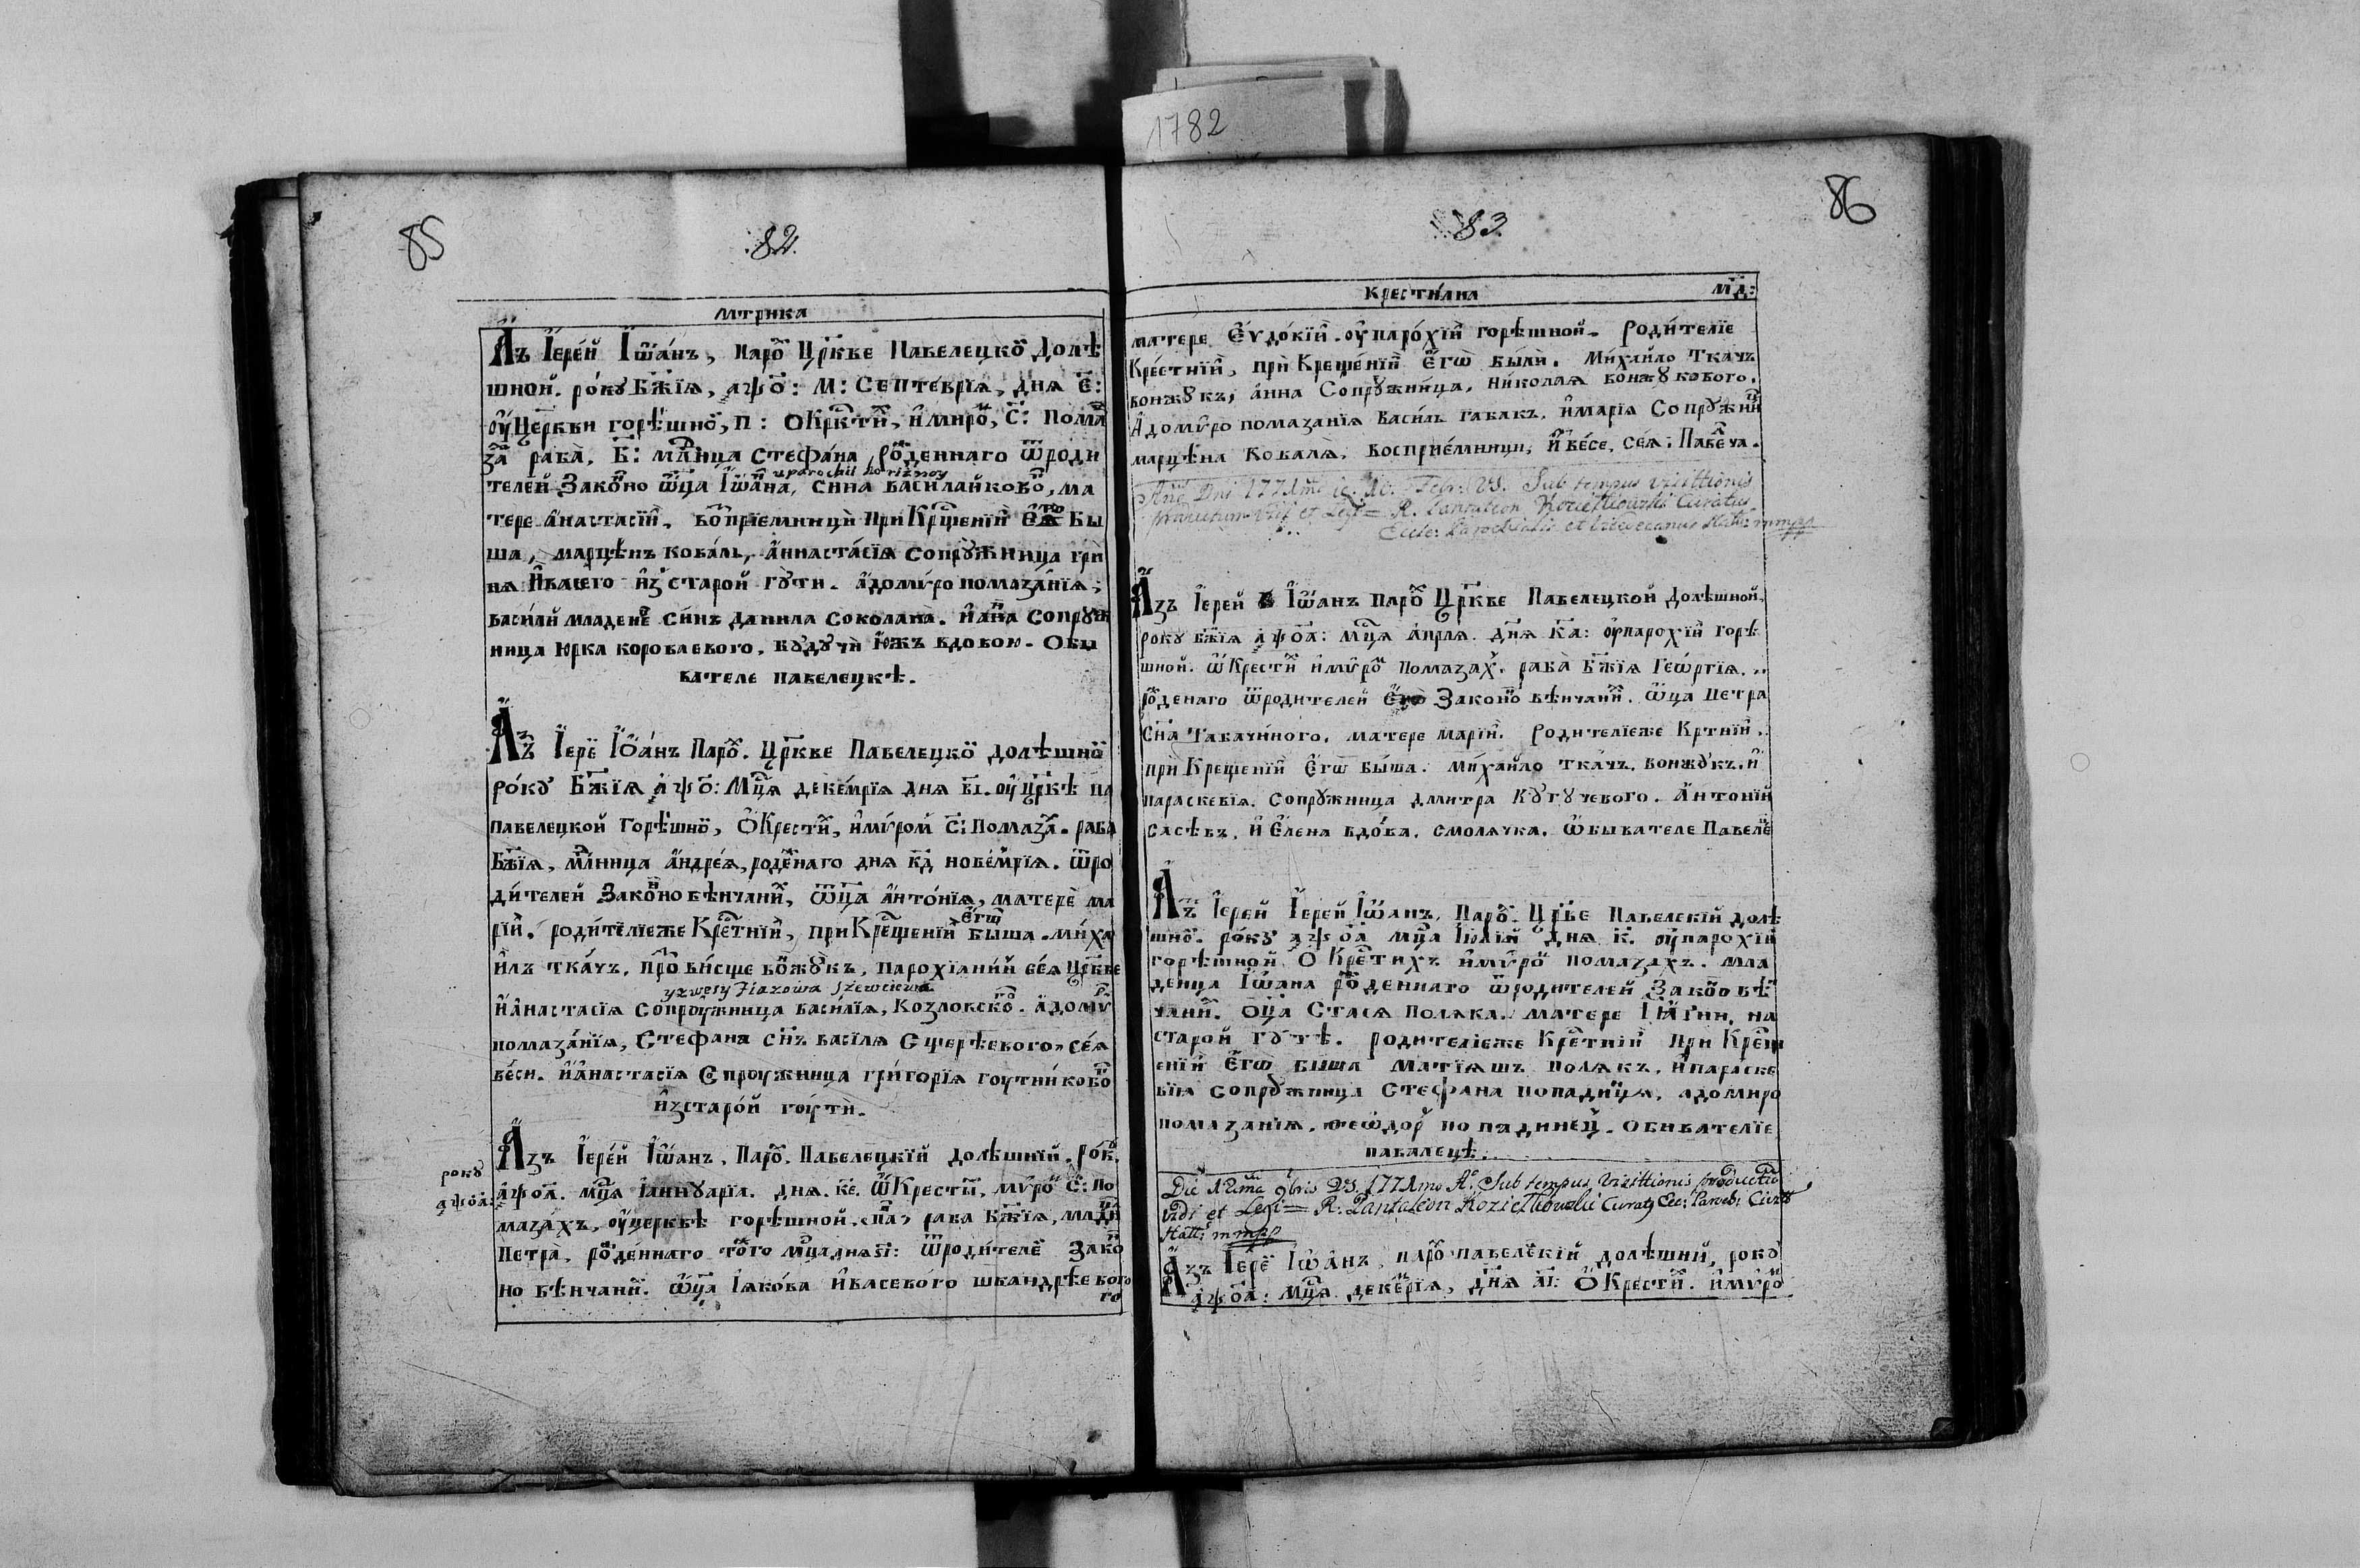 1782
85
82.
Мтрика
Азъ Їерей Їѡанъ, Паро Цркве Павелецко Долѣ
шной. року Бжїѧ, аѱо: М: Септеврїѧ, днѧ є:
ѹ Церкви горѣшно, п: Окркти, и миро, С: Пома
за раба, Б: млнца Стефана роденнаго ѿ роди
uparochii horiznoy
телей Законо ѿца Їѡана, сина Василайково, ма
тере Анастасїи. Воприемници при Кршенїи его Бы
ша, марцѣнъ коваль, Аннастасїѧ сопрꙋжница гри
нѧ Ивасего Из старой гꙋти. А до мѵро помазанїѧ;
василй младене синъ данила соколана. И ана сопрꙋж
ница Юрка короваевого, бꙋдꙋчи южъ вдовою. Обы
вателе павелецкѣ.
Азъ Їере Їѡанъ Паро. Цркве Павелецко долѣшно
Рокꙋ Бжїѧ аѱо: Мца декемрїѧ днѧ ві. ѹ црквѣ па
павелецкой Горѣшно, ѺКрести, и мѵром С: Помаза. раба
Бжїѧ, млнница Андреѧ, роденаго днѧ кд новемрїѧ. ѿ ро
дителей Законо вѣнчани, ѿца Антонїѧ, матерѐ ма
рїи. родителїеже Кретнїи, при Крещенїи его быша. миха
илъ ткачъ, про висще вожꙋкъ, парохїаний сеѧ Цркве
yzwesy Ziazowa Szewciewa
И Анастасїѧ Сопрꙋжница василїѧ, Козловско. А до мѵр
помазанїѧ, Стефанѧ синъ василѧ Сщерѣевого, сеѧ
веси. И Анастасїѧ Спрꙋжница григорїѧ гоутниково
Изстарой гоути.
року
аѱоа:
Азъ Їерей Їѡанъ. Паро. Павелецкїй долѣшнїй. рок.
аѱоа. мца Їаннꙋарїа. днѧ. ке. ѺКрести, мѵро С: По
мазахъ, ѹ церквѣ горѣшной. спа, раба Бжїѧ, млдн
Петра, роденнаго того мца днѧ ѕі: ѿ родителе Зако
но вѣнчани. ѿца Їѧкова Ивасевого шкандрѣевого
го
86
83
Крестилна
мд:
матере Еѵдокїи. ѹ парохїи горѣшной. родителїе
Крестнїи, при Крещенїи Егѡ были. Михайло Ткачъ
вонжꙋкъ, анна Сопрꙋжница, Николаѧ вонжꙋкового.
А до мѵро помазанїѧ Василь габакъ. И марїа Сопрꙋжни
марцѣна Ковалѧ, восприемници, и весе, сеѧ, Павеча.
Ano Dni 1771mo ic: Febr: V.S. Sub tempus vzisttionis
productum vidi et Legi = R. Pantaleon Kozicttkowski Curatus
Eccle: Parochialis et Vicedecanus Hatt: mmpp
Азъ Їерей Їѡанъ Паро Цркве Павелецкой долѣшной,
року бжїѧ аѱоа: мца априлѧ. днѧ ка: ѹ парохїи горѣ
шной. ѺКрести и мѵро помазах. раба Бжїѧ Геѡргїѧ.
роденаго ѿ родителей Его Законо вѣнчани. ѿца Петра
Сна Табачиного, матере марїи. родителїеже Кртнїи.
при Крещенїи Егѡ быша. михайло ткачъ. вонжꙋкъ. и
параскевїѧ. сопрꙋжница дмитра Кꙋгꙋчевого. Антонїй
сасѣвъ, и Елена вдова, смолачка. Ѻбывателе Павеле
Азъ Їерей Їерей Їѡанъ. Паро. Црве Павелскїй долѣ
шно. рокꙋ аѱоа мца Їюлїи днѧ к. ѹ парохїи
горѣшной О Кретихъ и мѵро помазахъ. мла
денца Їѡана роденнаго ѿ родителей Закоо вѣ
чани. Оца Стасѧ Полѧка. матере Їагни, на
старой гꙋтѣ. родителїеже Кретнїи при Крещ
енїи Егѡ быша матїѧшъ полѧкъ. и параске
вїѧ сопрꙋжница Стефана попадинця, а до миро
помазанїѧ, Ѳеѡдор попадинец. Обивателїе
павалецѣ.
Die 12ma 9bris V.S. 1771mo Ao Sub tempus vzisttionis productu
vidi et Legi = R. Pantaleon Kozicttkowski Curatq Ecc: Paroch: Civitt
Hatt: mmpp
Азъ Їере Їѡанъ, паро павелекїй долѣшнїй, рокꙋ
аѱоа: мца декемрїѧ, днѧ аі: ѺКрести. и мѵро